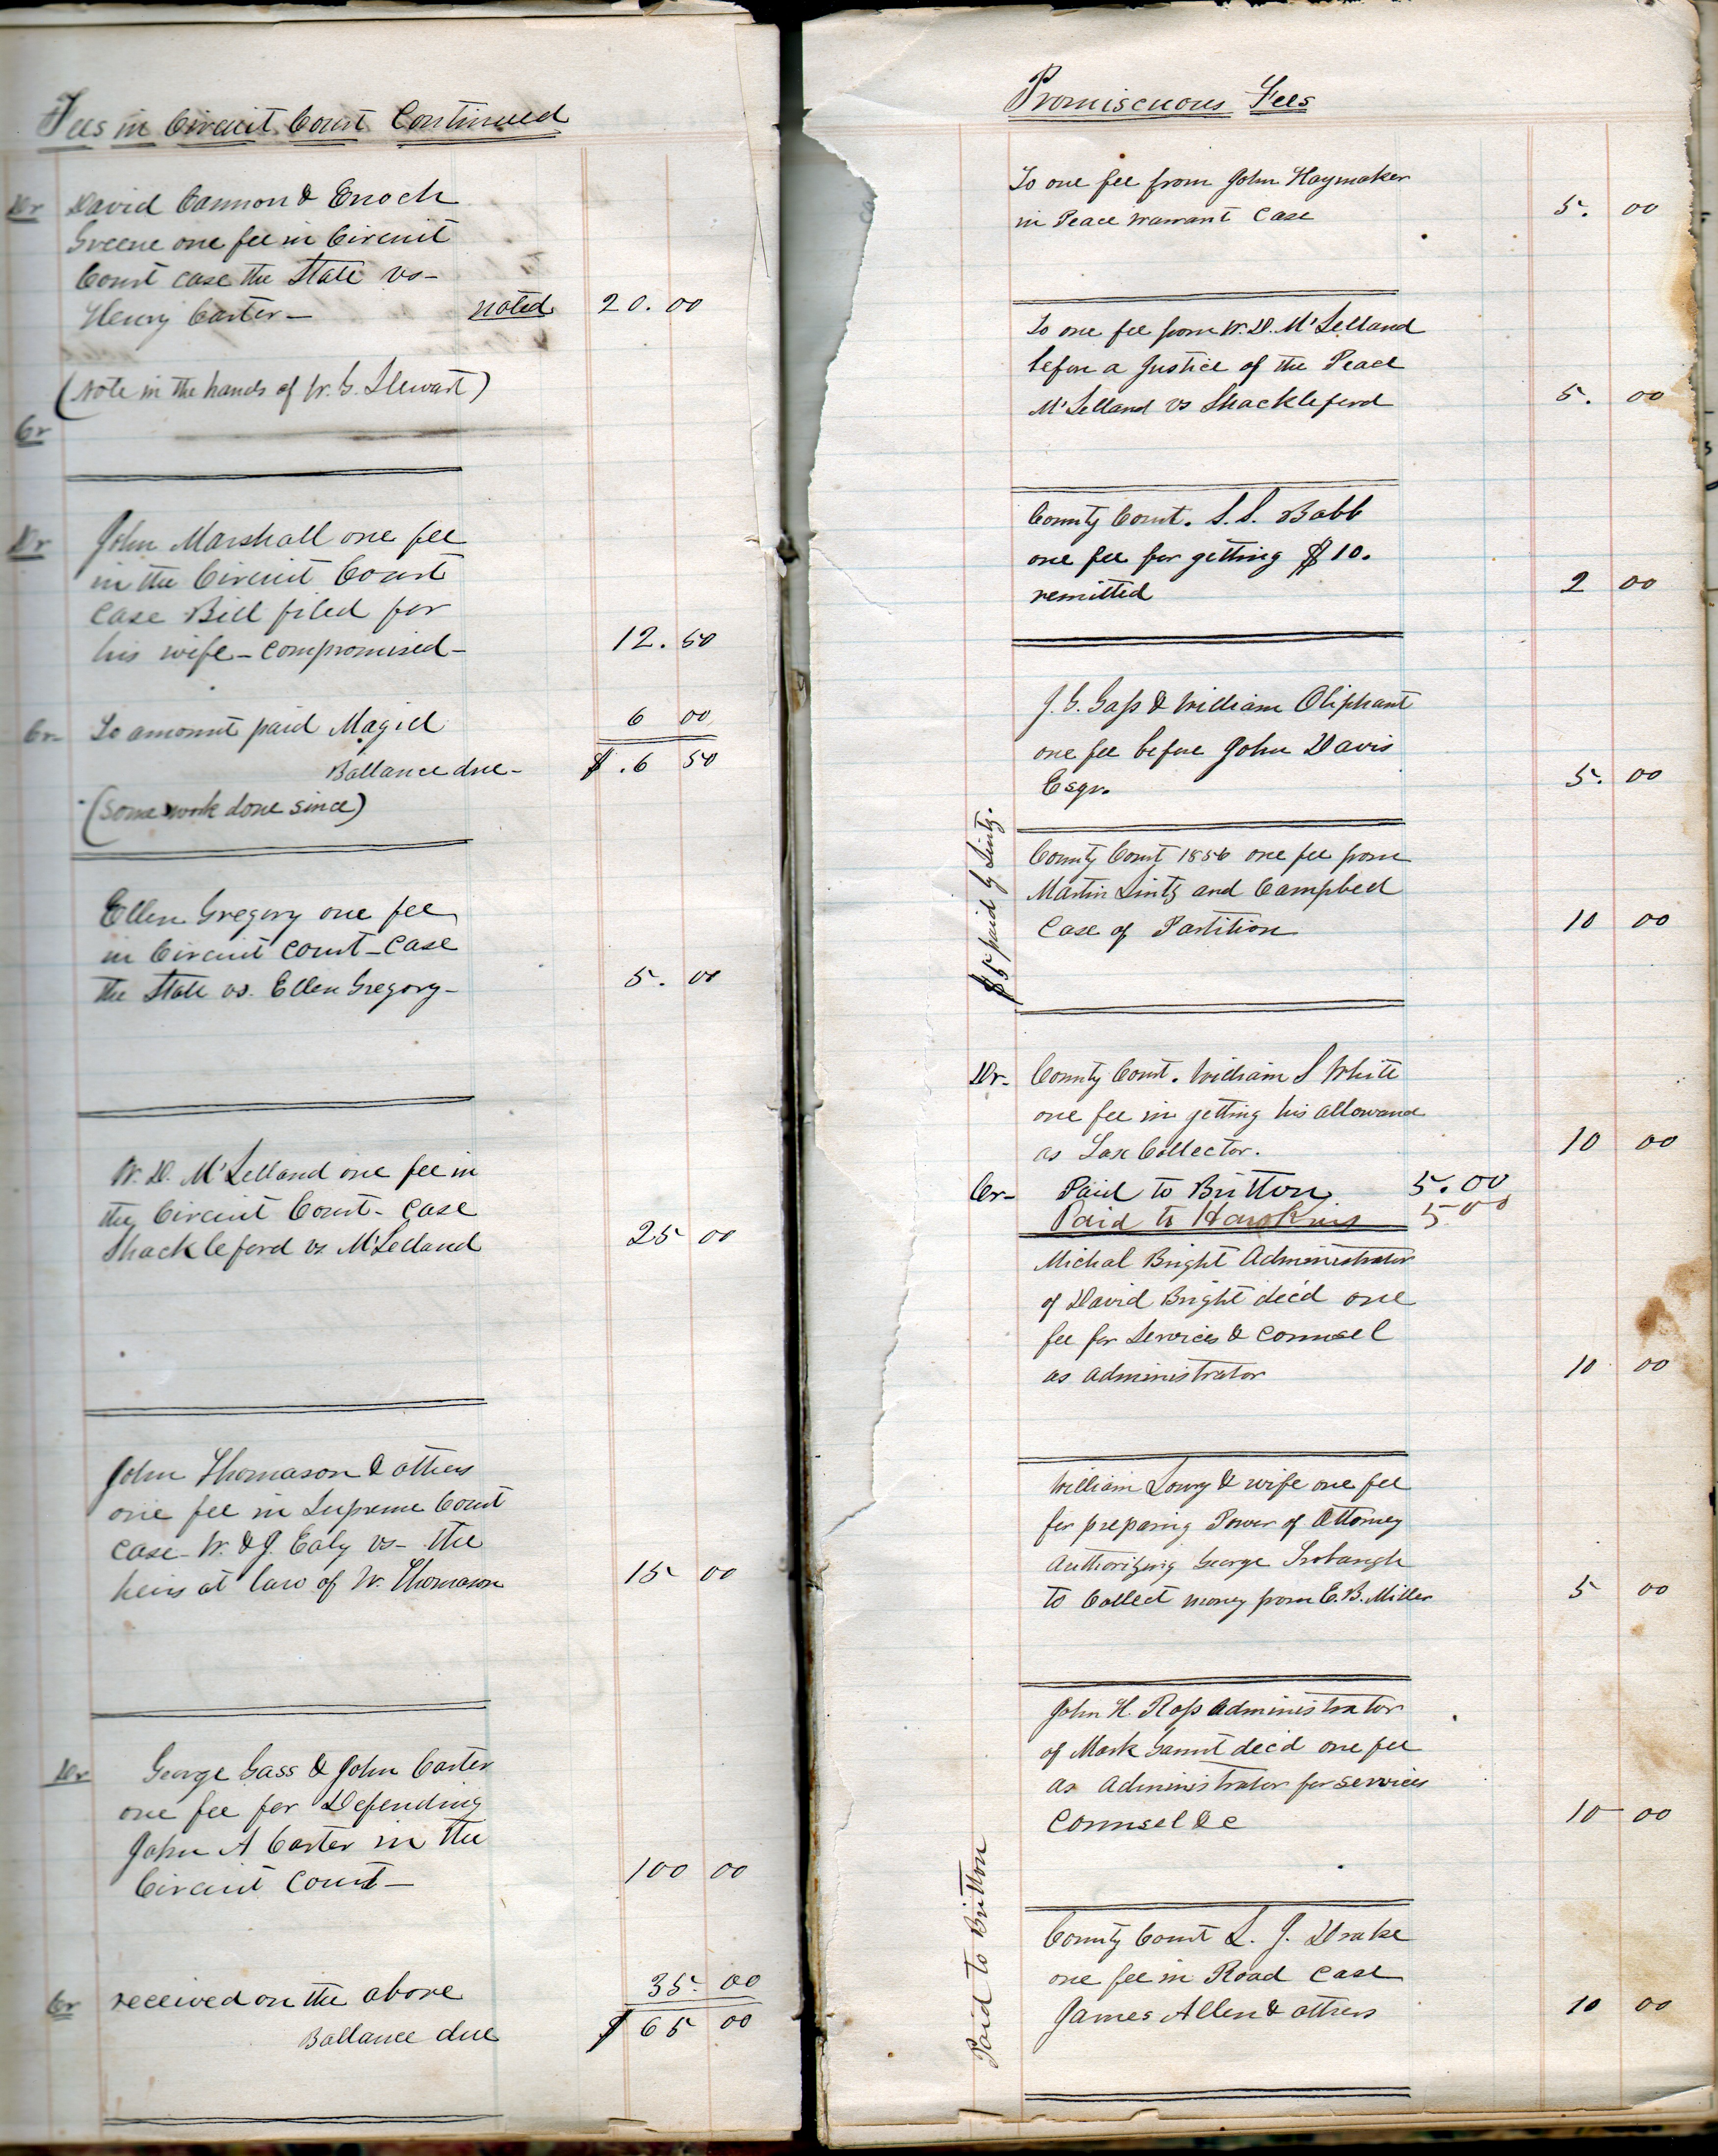 Fees in Circuit Court Continued
Dr David Cannon & Enoch
Greene one fee in Circuit
Court case the State vs-
Henry Carter- noted 20.00
(Note in the hands of W. G. Stewart)
Cr
Dr John Marshall one fee
in the Circuit Court
Case Bill filed for
his wife - compromised- 12.50
Cr- To amount paid Magill 6 00
Ballance due- $.6 50
(some work done since)
Ellen Gregory one fee
in Circuit court - Case
the State vs. Ellen Gregory- 5. 00
W. D. McLelland one fee in
the Circuit Court - Case
Shackleford vs McLelland 25 00
John Thomason & others
one fee in Supreme Court
case - W. & J. Ealy vs - the
heirs at law of W. Thomason 15 00
Dr George Gass & John Carter
one fee for Defending
John A Carter in the
Circuit Court- 100 00
Cr received on the above 35. 00
Ballance due $ 65 00
Promiscuous Fees
To one fee from John Haymaker
in Peace warrant Case 5. 00
To one fee from W. D. McLelland
before a Justice of the Peace
McLelland vs Shackleford 5. 00
County Court. S. S. Babb
one fee for getting $10.
remitted 2 00
J. G. Gass & William Oliphant
one fee before John Davis
Esqr. 5. 00
County Court 1856 one fee from
Martin Lintz and Campbell
Case of Partition 10 00
$5 paid by Lintz.
Dr- County Court. William S White
one fee in getting his allowance
as Tax Collector. 10 00
Cr- Paid to Britton 5.00
Paid to Hawkins 5 00
Michal Bright Administrator
of David Bright dec'd one
fee for Services & Counsel
as administrator 10 00
William Lowry & wife one fee
for preparing Power of Attorney
Authorizing George Trobaugh
to Collect money from E. B. Miller 5 00
John H. Ross Administrator
of Mark dec'd one fee
as Administrator for services
Counsel &c 10 00
County Court L. J. Drake
one fee in Road Case
James Allen & others 10 00
Paid to Britton